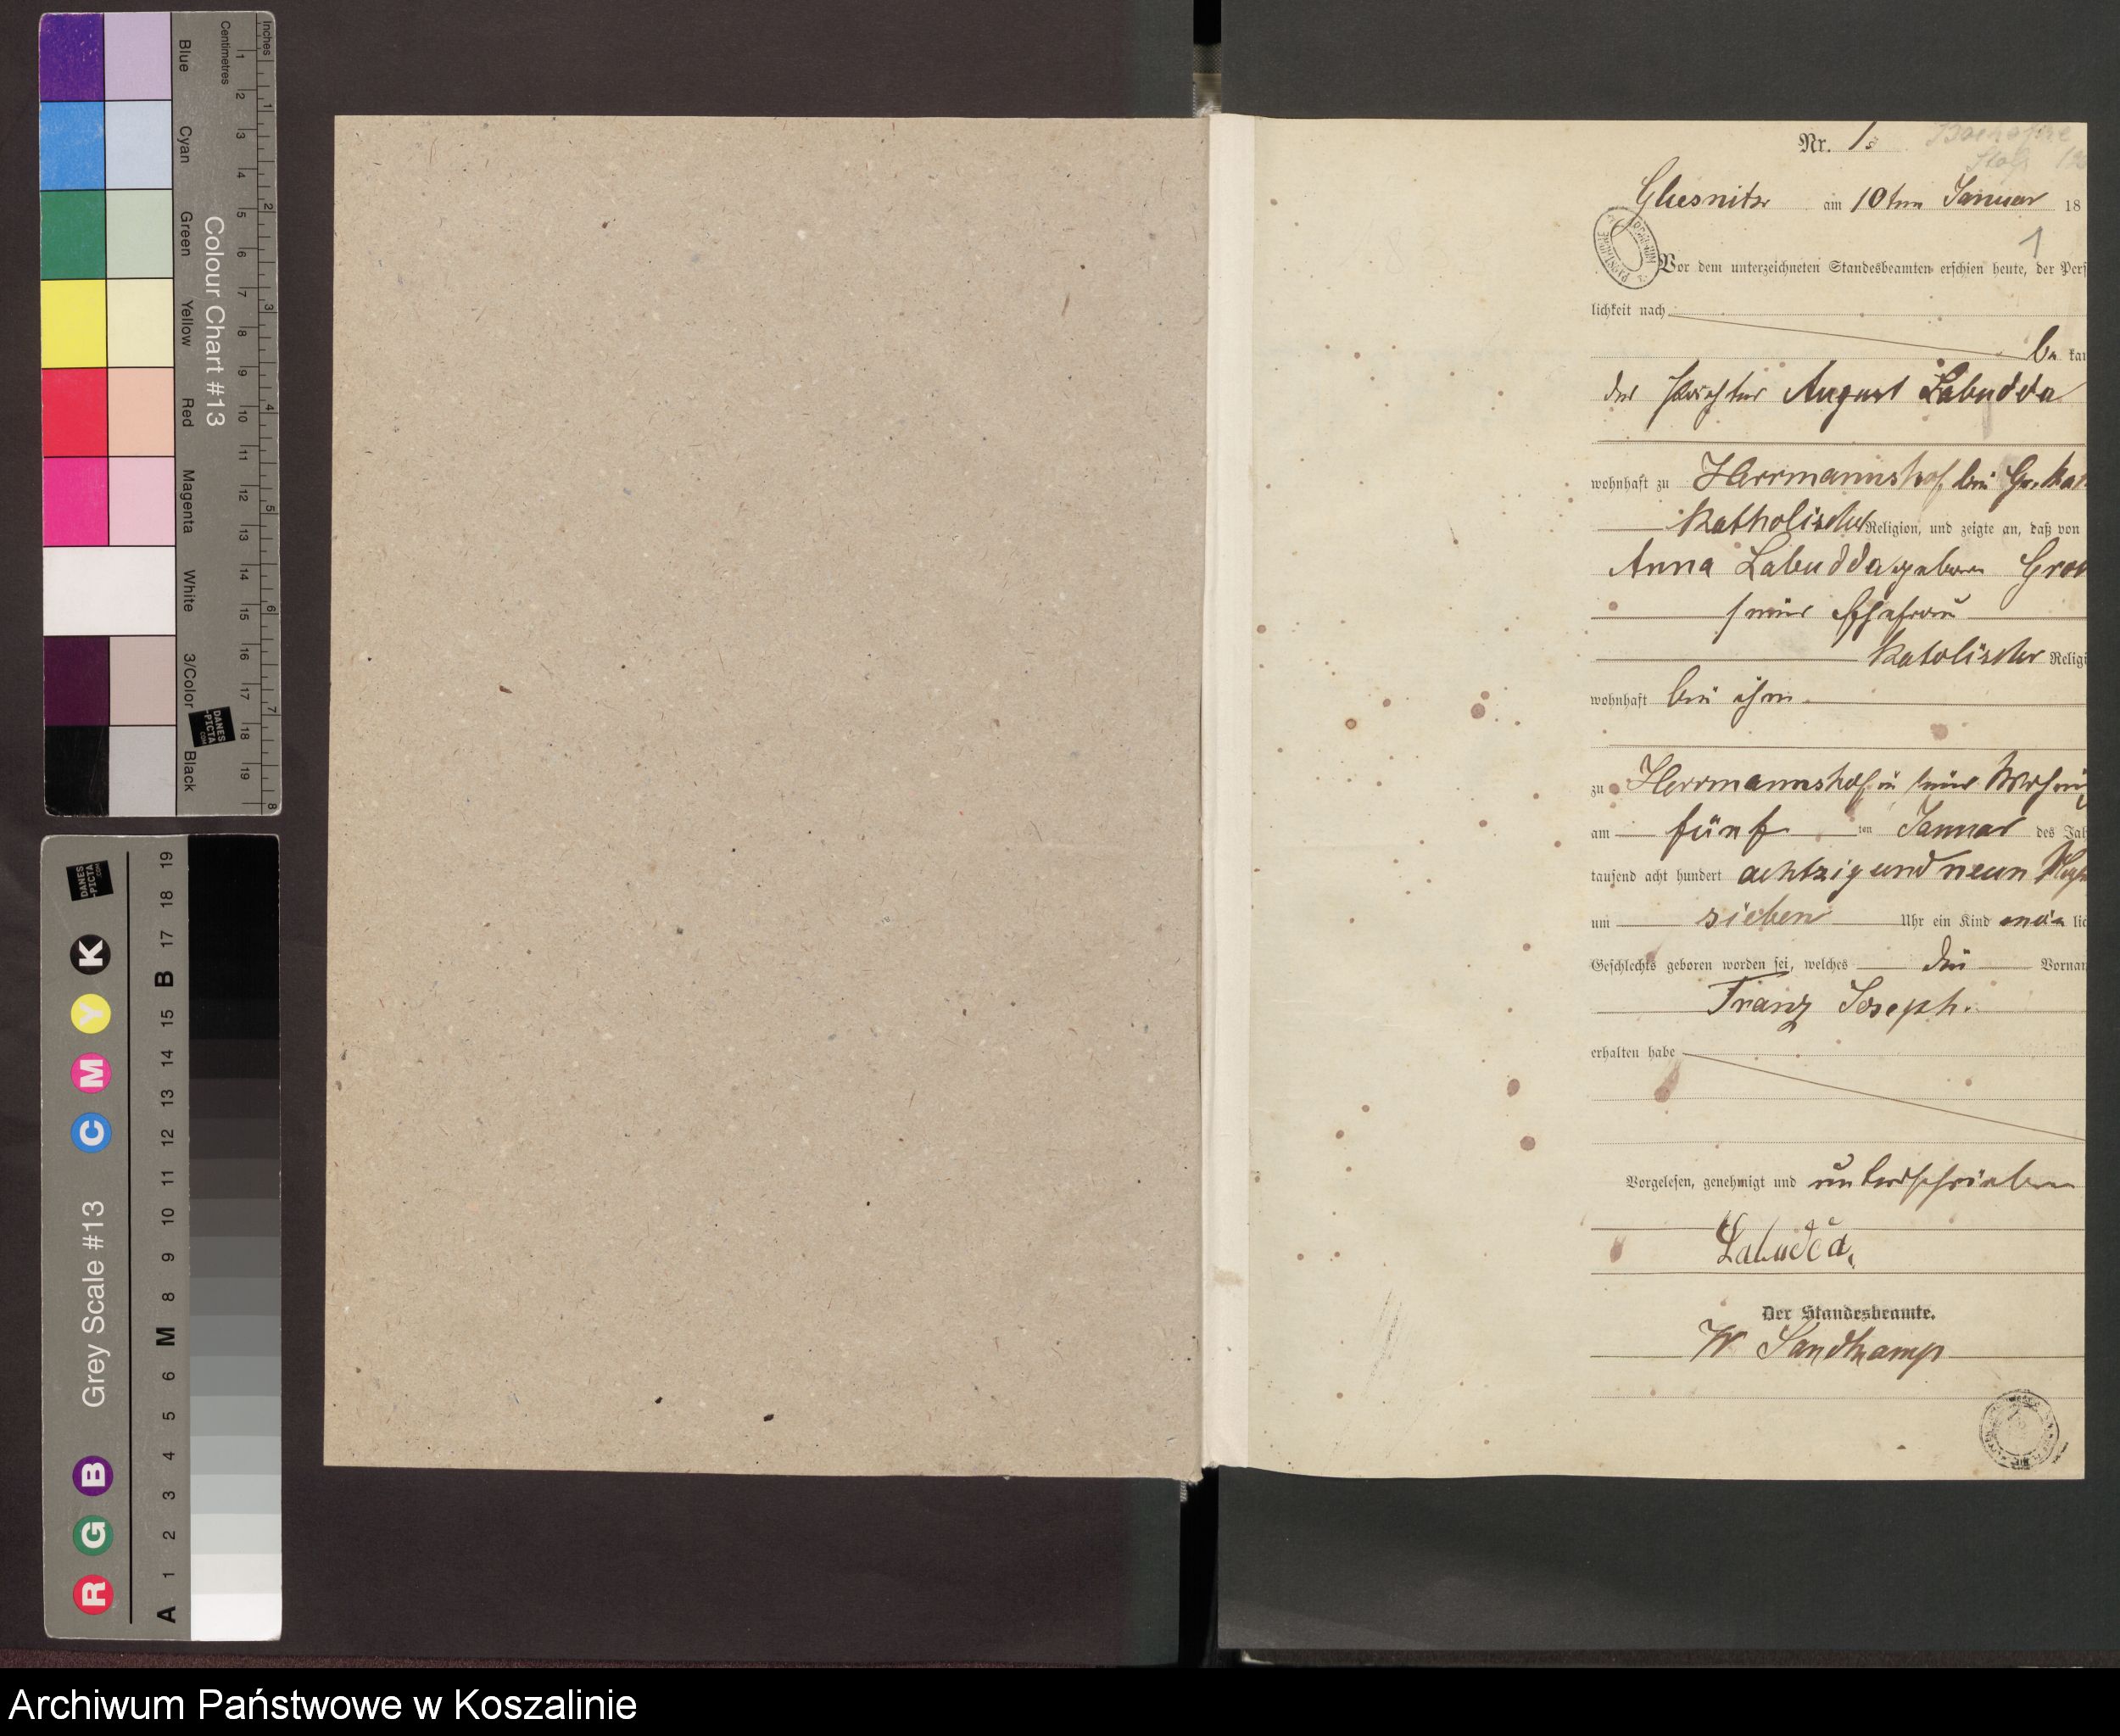 Inches
Centimetres
1 2 3 4 5 6 7 8 9 10 11 12 13 14 15 16 17 18 19
1 2 3 4 5 6 7 8
Colour Chart #13
Blue
Cyan
Green
Yellow
Red
Magenta
White
3/Color
Black
DANES
-PICTA
.COM
DANES
-PICTA
.COM
Grey Scale #13
R G B C M Y K
A 1 2 3 4 5 6 M 8 9 10 11 12 13 14 15 B 17 18 19
Nr. 1
Gliesnitz am 10ten Januar 18
1
Vor dem unterzeichneten Standesbeamten erschien heute, der Pers
lichkeit nach
be kan
der Pächter August Labudda
wohnhaft zu Herrmannshof bei Gr.
katholischer Religion, und zeigte an, daß von
Anna Labudda geboren
seiner Ehefrau
katolischer Religi
wohnhaft bei ihm
zu Herrmannshof in seiner Wohnung
am fünf ten Januar des Jah
tausend acht hundert achtzig und neun
um sieben Uhr ein Kind män lic
Geschlechts geboren worden sei, welches die Vornam
Franz Joseph.
erhalten habe
Vorgelesen, genehmigt und unterschrieben
Labudda
Der Standesbeamte.
W Sandkamp
Archiwum Państwowe w Koszalinie